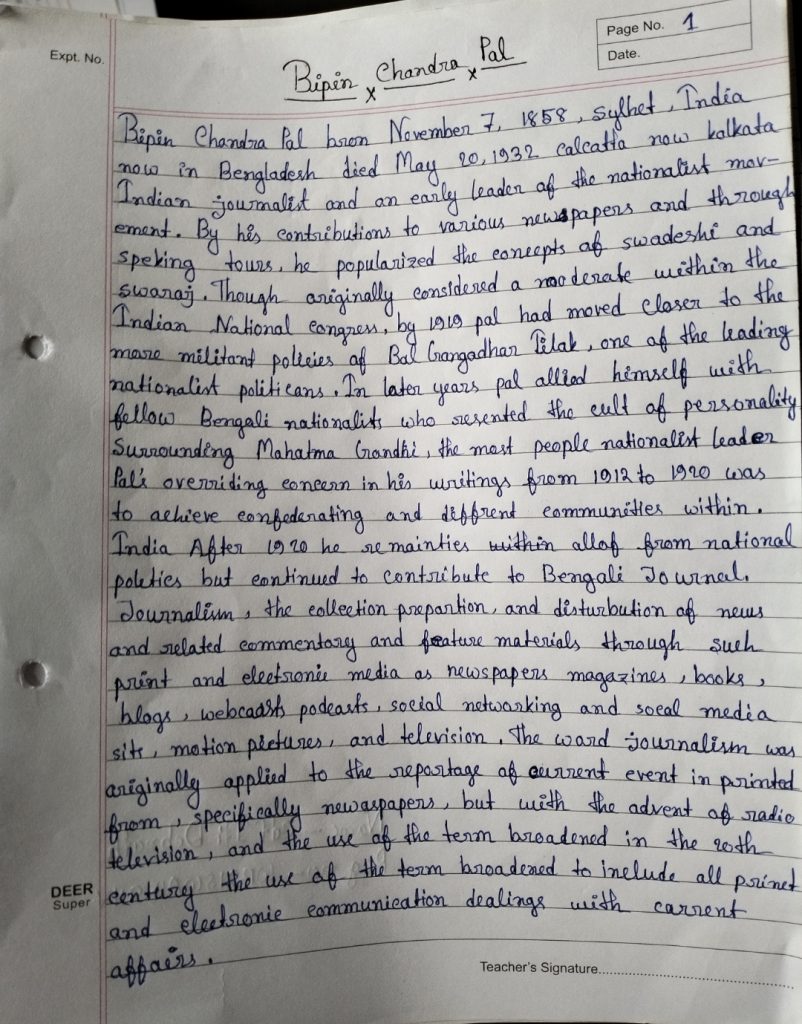 Expt. No.
Page No. 1
Date.
Bipin Chandra Pal
x x
Bipin Chandra Pal bron November 7, 1858, sylhet, India
now in Bengladesh died May 20, 1932 calcatta now kolkata
Indian journalist and an early leader of the nationalist mov-
ement. By his contributions to various newspapers and through
speking tours, he popularized the concepts of swadeshi and
swaraj. Though ariginally considered a mooderate within the
Indian National congress, by 1919 pal had moved closer to the
more militant policies of Bal Gangadhar Tilak, one of the leading
nationalist politicans. In later years pal allied himself with
fellow Bengali nationalits who resented the cult of personality
Surrounding Mahatma Gandhi, the most people nationalist leader
Pal's overriding concern in his writings from 1912 to 1920 was
to achieve confederating and diffrent communities within.
India After 1920 he remainties within allof from national
politics but continued to contribute to Bengali Journal.
Journalism, the collection prepartion, and disturbution of news
and related commentary and feature materials through such
print and electronic media as newspapers magazines, books,
blogs, webcaasts podcasts, social networking and soeal media
sits, motion pictures, and television. The word journalism was
ariginally applied to the reportage of current event in printed
from, specifically newaspapers, but with the advent of radio
television, and the use of the term broadened in the 20th
century the use of the term broadened to include all prinet
and electronic communication dealings with carrent
affairs.
DEER
Super
Teacher's Signature